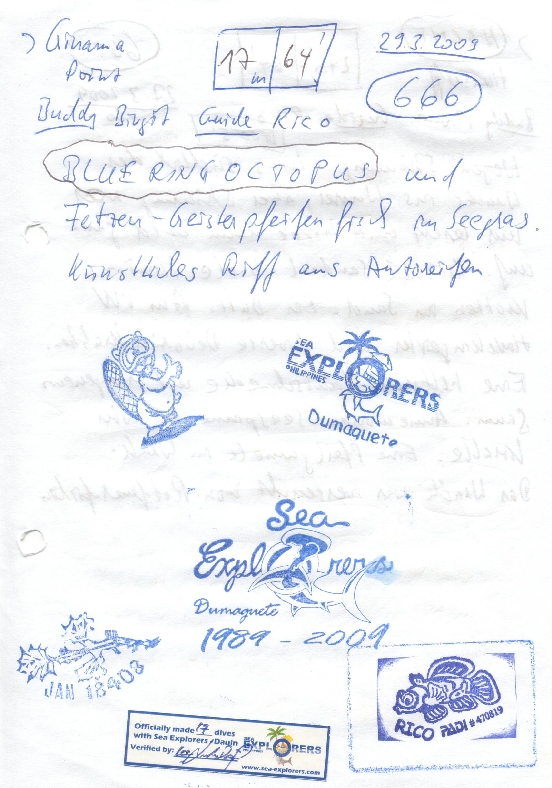 Ginama
Point
17 m 64'
29.3.2009
666
Buddy Birgit Guide Rico
BLUE RING OCTOPUS und
Fetzen-Geisterpfeifenfisch im Seegras.
Künstliches Riff aus Autoreifen
SEA
EXPLORERS
PHILIPPINES
Dumaguete
Sea
Explorers
Dumaguete
1989 - 2009
JAN 18408
RICO PADI # 470819
Officially made 17 dives
with Sea Explorers / Dauin
Verified by:
SEA EXPLORERS
www.sea-explorers.com